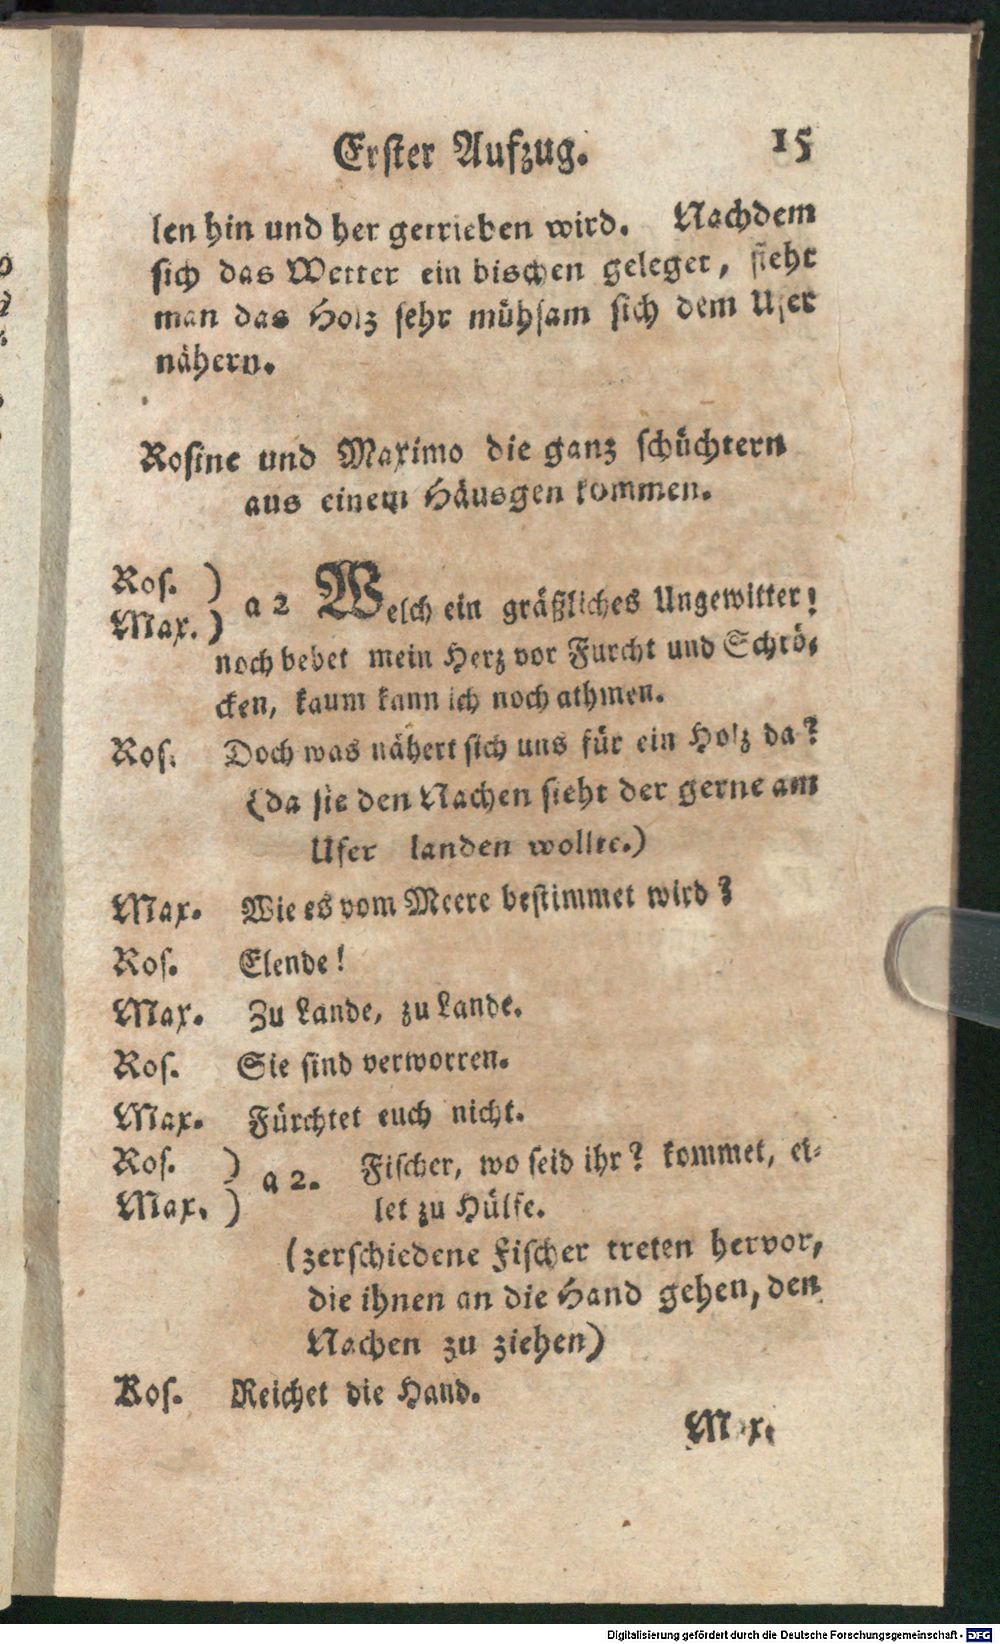 Erster Aufzug. 15
len hin und her getrieben wird. Nachdem
sich das Wetter ein bischen geleget, sieht
man das Holz sehr mühsam sich dem Ufer
nähern.
Rosine und Maximo die ganz schüchtern
aus einem Häusgen kommen.
Ros. )
Max. ) a 2 Welch ein gräßliches Ungewitter!
noch bebet mein Herz vor Furcht und Schrö-
cken, kaum kann ich noch athmen.
Ros. Doch was nähert sich uns für ein Holz da?
(da sie den Nachen sieht der gerne am
Ufer landen wollte.)
Max. Wie es vom Meere bestimmet wird?
Ros. Elende!
Max. Zu Lande, zu Lande.
Ros. Sie sind verworren.
Max. Fürchtet euch nicht.
Ros. ) a 2. Fischer, wo seid ihr? kommet, ei-
Max. ) let zu Hülfe.
(zerschiedene Fischer treten hervor,
die ihnen an die Hand gehen, den
Nachen zu ziehen)
Ros. Reichet die Hand.
Max.
Digitalisierung gefördert durch die Deutsche Forschungsgemeinschaft - DFG